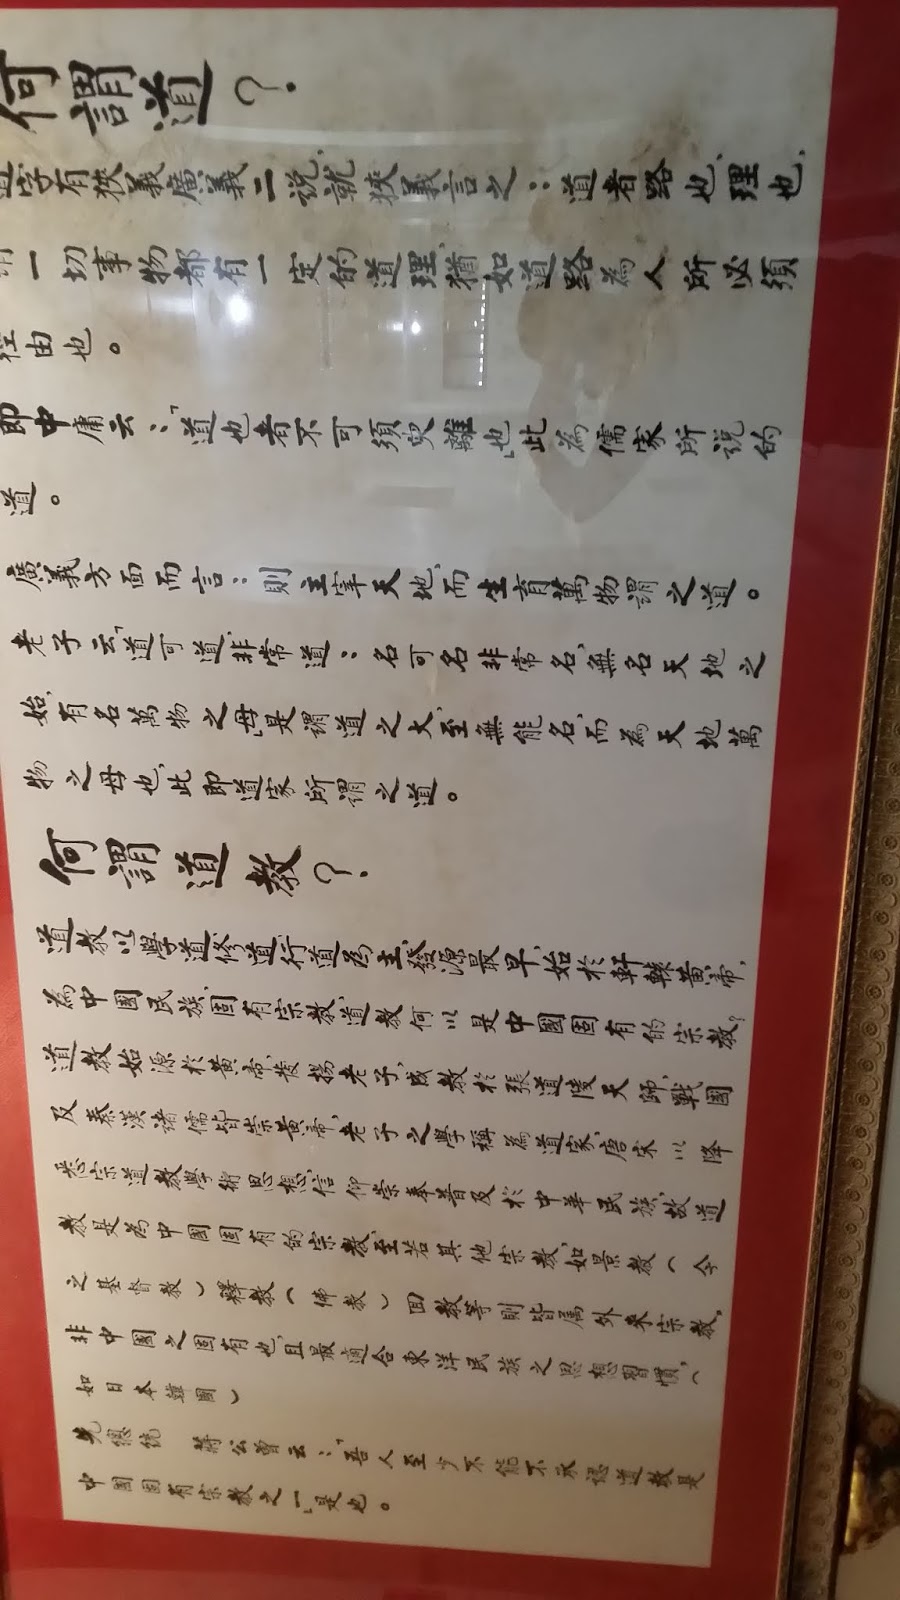 何謂道？
道字有狹義廣義二說，就狹義言之：道者路也，理也，
謂一切事物都有一定的道理，猶如道路為人所必須
徑由也。
即中庸云：「道也者不可須臾離也」此為儒家所說的
道。
廣義方面而言：則主宰天地，而生育萬物謂之道。
老子云「道可道，非常道：名可名非常名，無名天地之
始，有名萬物之母」是謂道之大，至無能名，而為天地萬
物之母也，此即道家所謂之道。
何謂道教？
道教以學道、修道、行道為主，發源最早，始於軒轅黃帝，
為中國民族，固有宗教，道教何以是中國固有的宗教？
道教始源於黃帝，發揚老子，成教於張道陵天師，戰國
及秦漢諸儒皆崇黃帝，老子之學稱為道家，唐宋以降
悉宗道教學術思想，信仰崇奉普及於中華民族，故道
教是為中國固有的宗教，至若其他宗教，如景教（今
之基督教）釋教（佛教）回教等則皆屬外來宗教，
非中國之固有也，且最適合東洋民族之思想習慣，（
如日本韓國）
先總統　蔣公曾云：「吾人至少不能不承認道教是
中國固有宗教之一」是也。